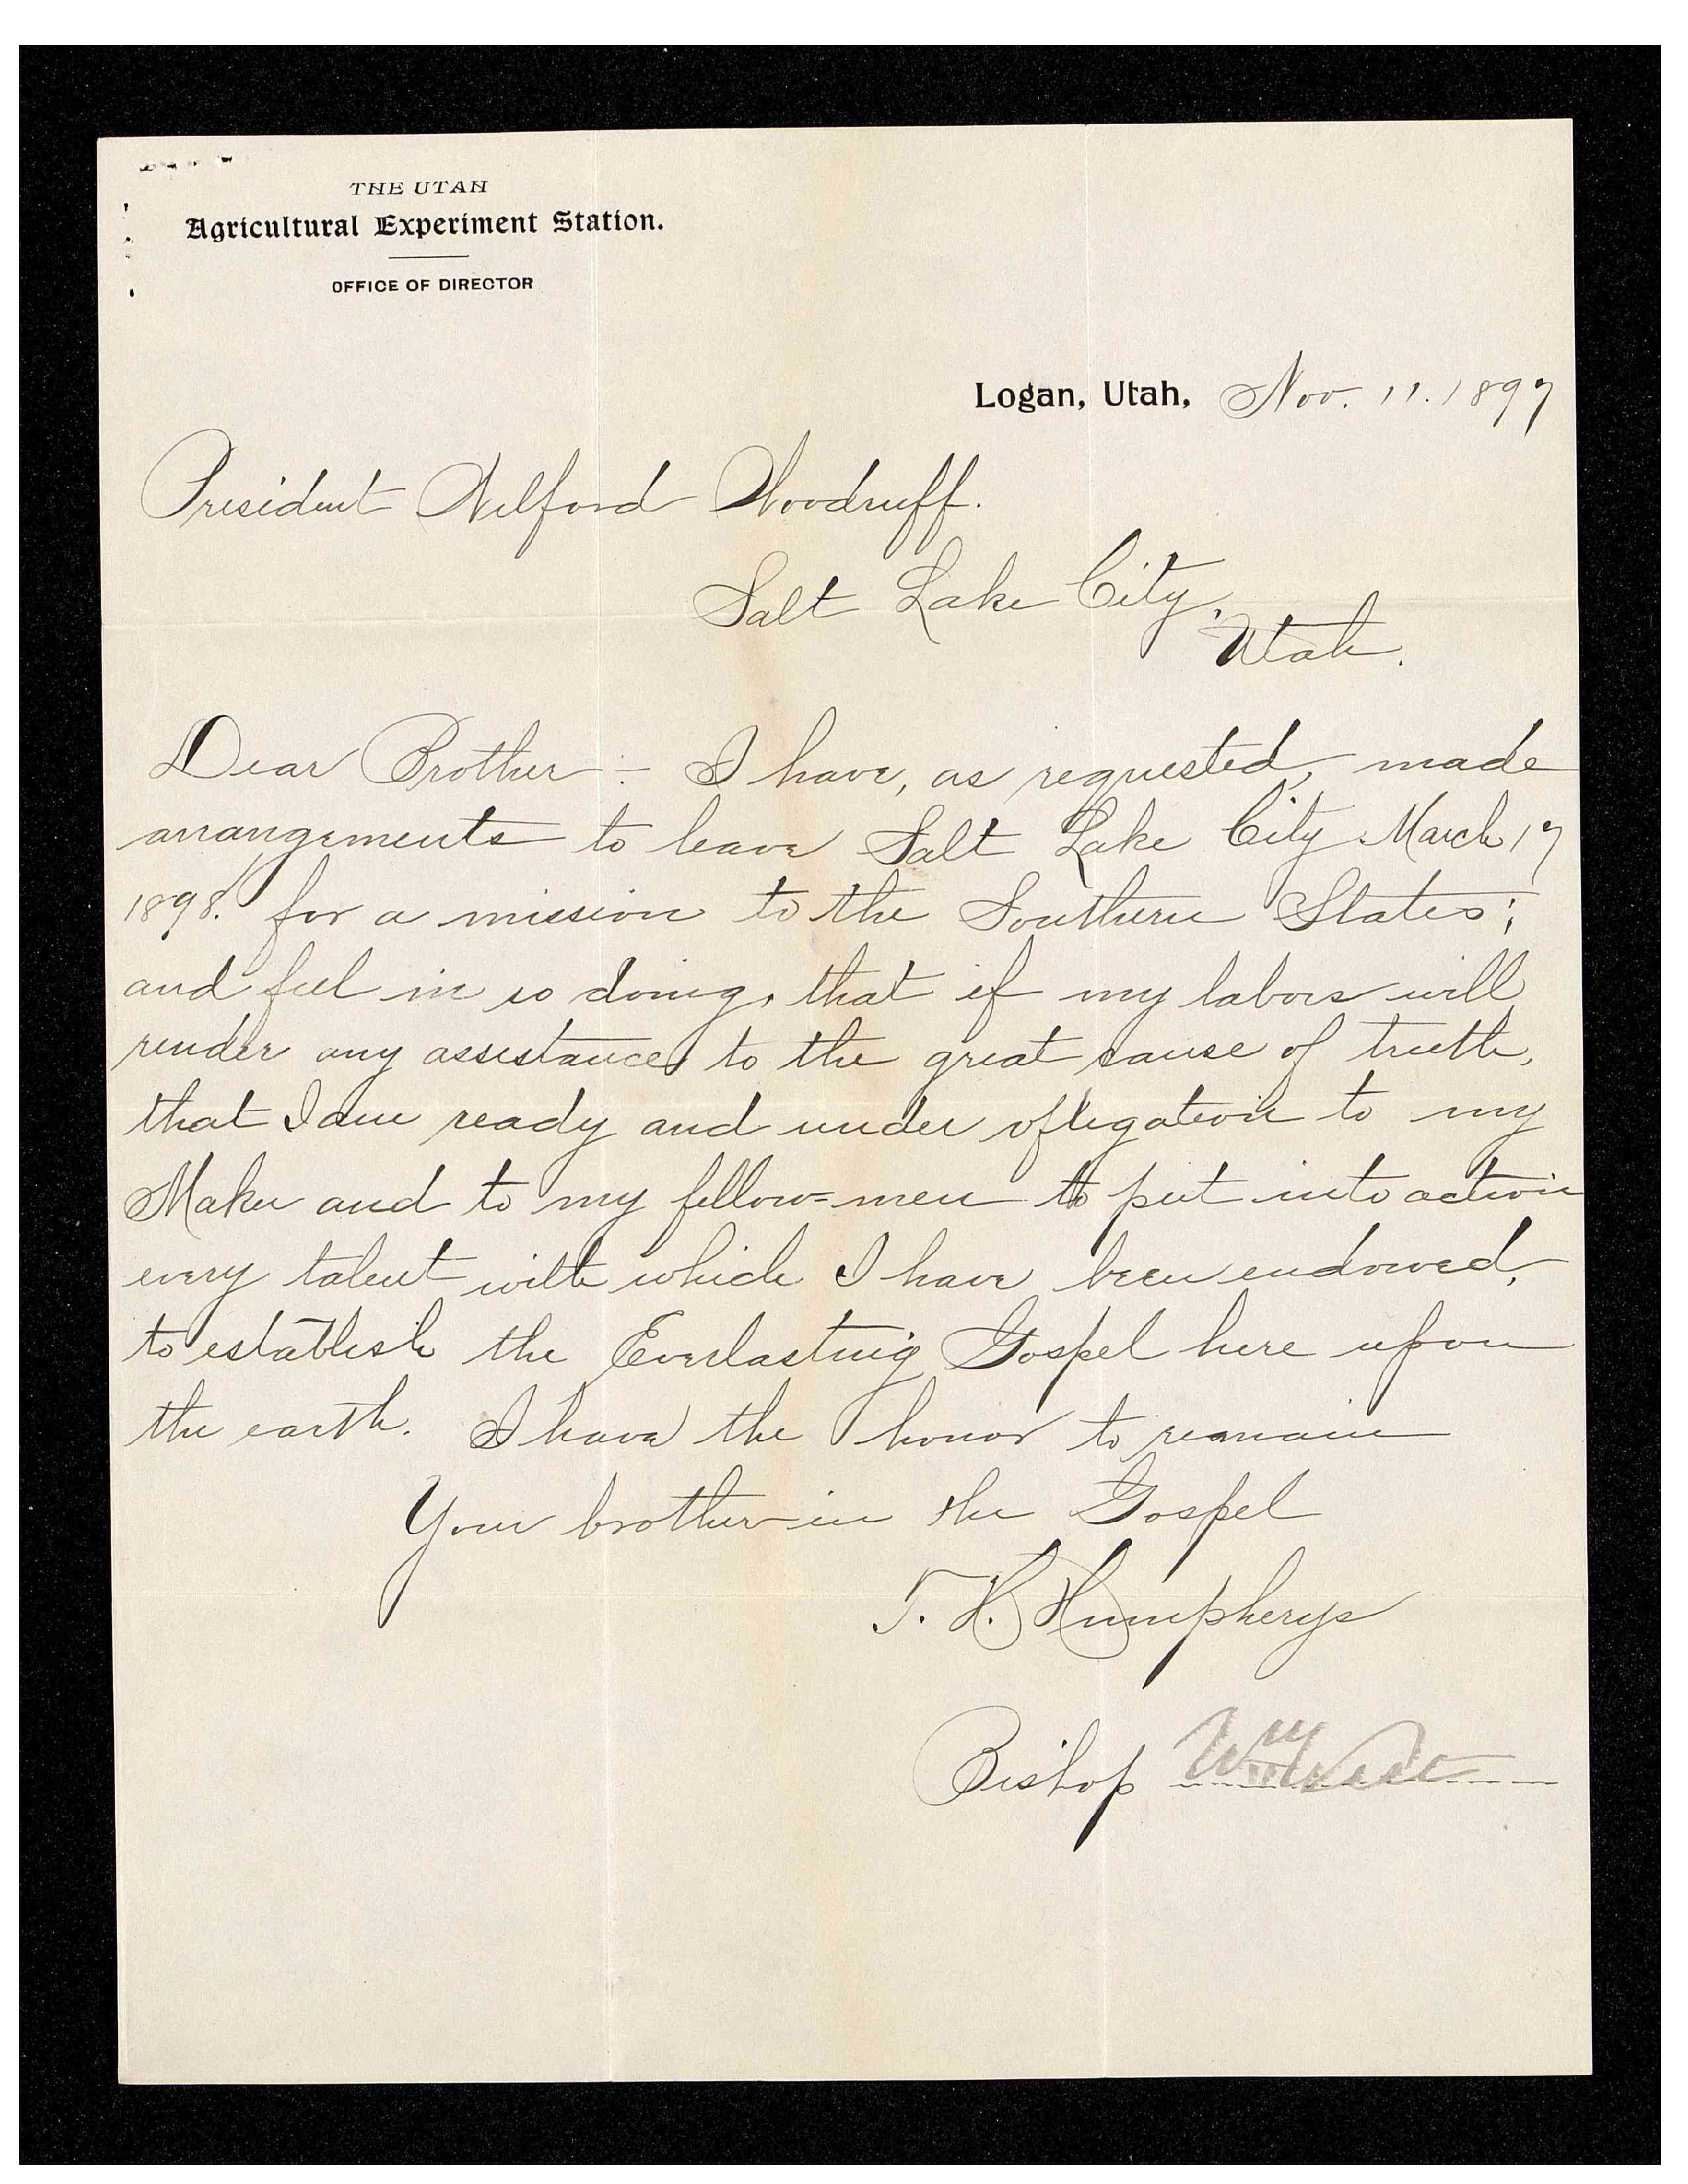 THE UTAH
Agricultural Experiment Station.
OFFICE OF DIRECTOR
Logan, Utah, Nov. 11. 1897
President Wilford Woodruff.
Salt Lake City,
Utah.
Dear Brother:- I have, as requested, made
arrangements to leave Salt Lake City March 17
1898. for a mission to the Southern States;
and feel in so doing, that if my labors will
render any assistance to the great cause of truth,
that I am ready and under obligation to my
Maker and to my fellow=men to put into action
every talent with which I have been endowed,
to establish the Everlasting Gospel here upon
the earth. I have the honor to remain
Your brother in the Gospel
T. H. Humpherys
Bishop Wm